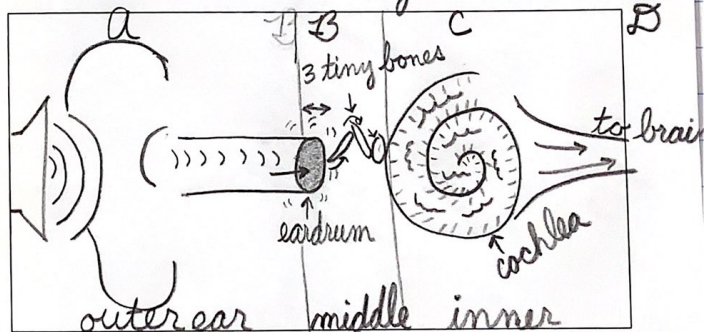 a B B C D
3 tiny bones
to brain
eardrum
cochlea
outer ear middle inner